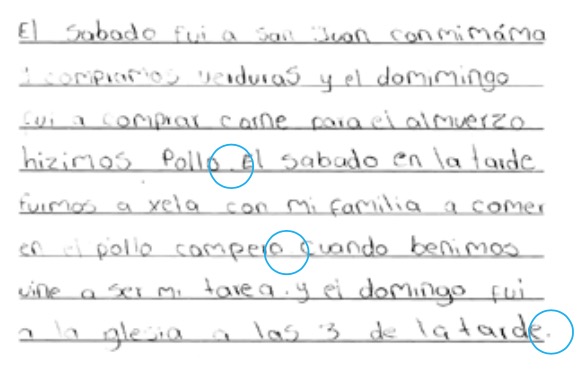 El sabado fui a san Juan conmimáma
i compramos verduras y el domimingo
fui a comprar carne para el almuerzo
hizimos Pollo. El sabado en la tarde
fuimos a xela con mi familia a comer
en el pollo campero cuando benimos
vine a ser mi tarea. y el domingo fui
a la glesia a las 3 de la tarde.